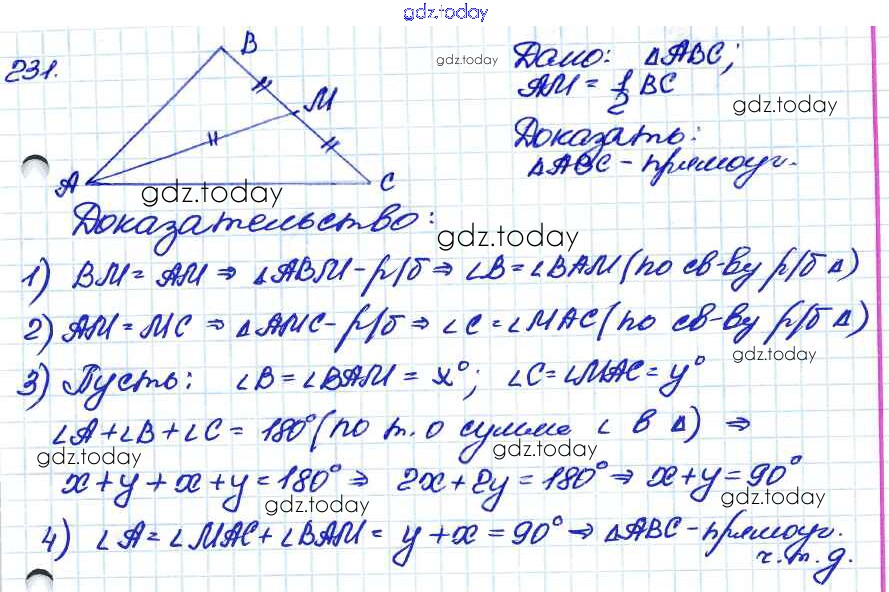 gdz.today
231.
B
M
A
C
gdz.today
Дано: △ABC;
AM = 1/2 BC
gdz.today
Доказать:
△ABC - прямоуг.
gdz.today
Доказательство:
gdz.today
1) BM = AM ⇒ △ABM - р/б ⇒ ∠B = ∠BAM (по св-ву р/б △)
2) AM = MC ⇒ △AMC - р/б ⇒ ∠C = ∠MAC (по св-ву р/б △)
gdz.today
3) Пусть: ∠B = ∠BAM = x°; ∠C = ∠MAC = y°
∠A + ∠B + ∠C = 180° (по т. о сумме ∠ в △) ⇒
gdz.today gdz.today
x + y + x + y = 180° ⇒ 2x + 2y = 180° ⇒ x + y = 90°
gdz.today gdz.today
4) ∠A = ∠MAC + ∠BAM = y + x = 90° ⇒ △ABC - прямоуг.
ч.т.д.